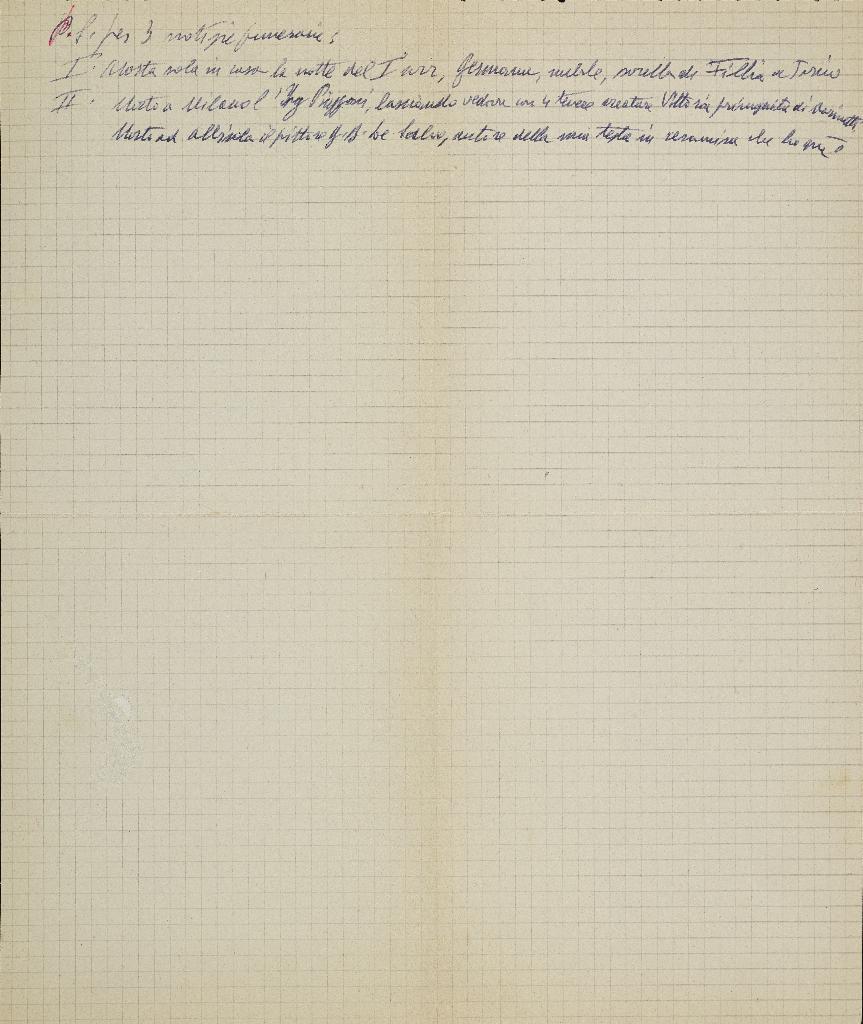 P.S. per 3 notizie funerarie:
I. Morta sola in casa la notte del I° corr, Germana, nubile, sorella di Fillia a Torino
II. Morto a Milano l'Ing, lasciando vedova con 4 tenere creature Vittoria primogenita di
Morto ad Albisola il pittore G. B. De Salvo, autore della mia testa in ceramica che ho qua